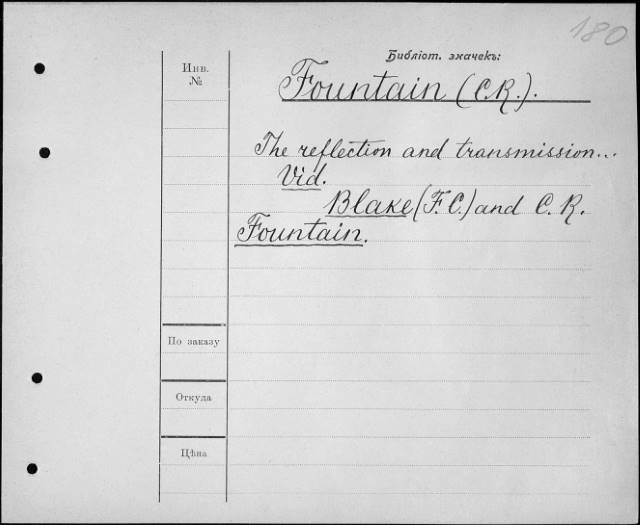 180
Библіот. значекъ:
Инв.
№
Fountain (C.R.).
The reflection and transmission...
Vid.
Blake (F.C.) and C. R.
Fountain.
По заказу
Откуда
Цѣна